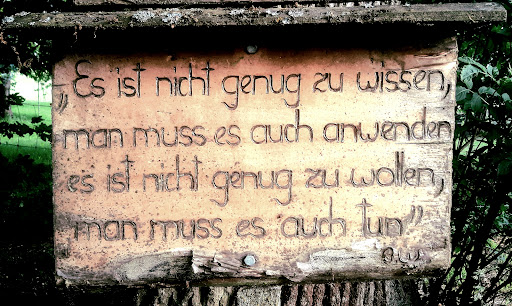 „Es ist nicht genug zu wissen,
man muss es auch anwenden
es ist nicht genug zu wollen,
man muss es auch tun”